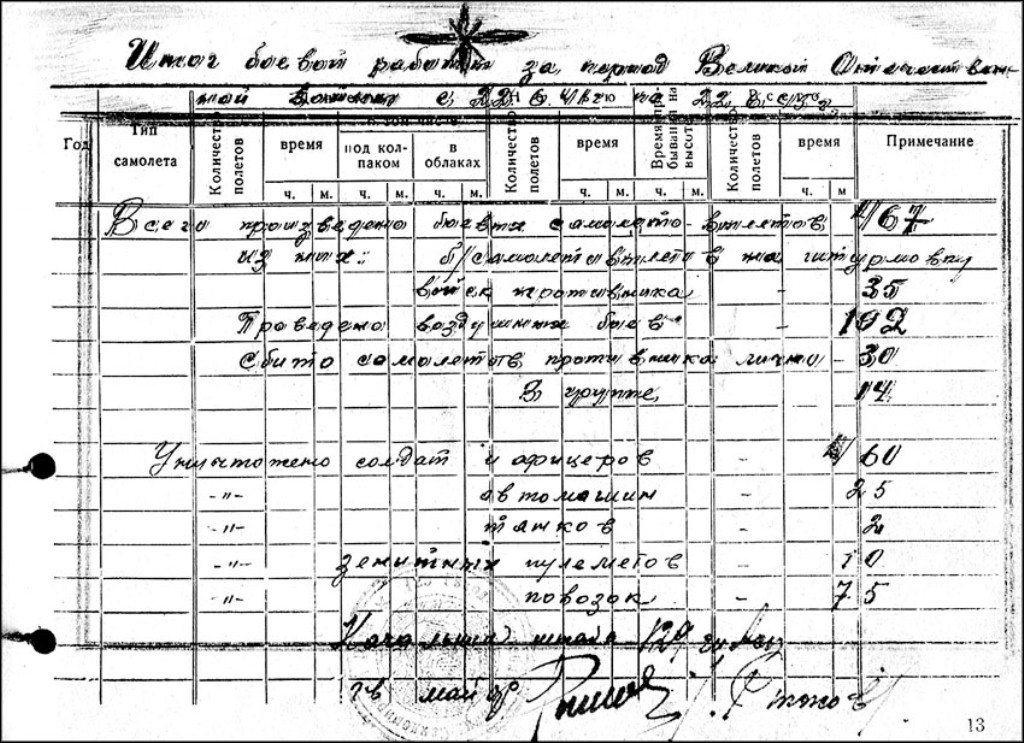 Итог боевой работы за период Великой Отечествен-
ной войны с 22.6.41г. по
Год
Тип самолета
Количество полетов
время
под колпаком
в облаках
Количество полетов
время
Время пребывания на высоте
Количество полетов
время
Примечание
ч. м. ч. м. ч. м. ч. м. ч. м. ч. м
Всего произведено боевых самолето-вылетов
из них: б/самолетовылетов на штурмовку
войск противника - 35
Проведено воздушных боев - 102
Сбито самолетов противника лично - 30
В группе, 14
Уничтожено солдат и офицеров 60
-"- автомашин - 25
-"- танков - 2
-"- зенитных пулеметов 10
-"- повозок - 75
Начальник штаба 129
гв майор
13